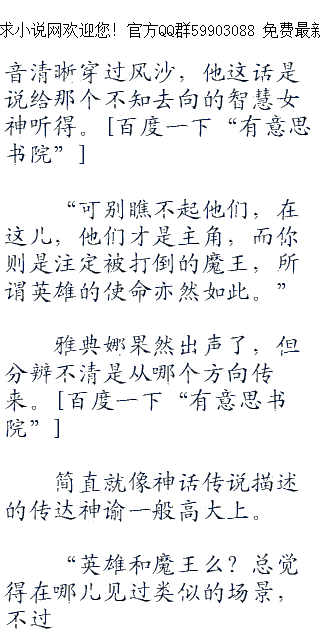 求小说网欢迎您！官方QQ群59903088 免费最新
音清晰穿过风沙，他这话是
说给那个不知去向的智慧女
神听得。[百度一下“有意思
书院”]
“可别瞧不起他们，在
这儿，他们才是主角，而你
则是注定被打倒的魔王，所
谓英雄的使命亦然如此。”
雅典娜果然出声了，但
分辨不清是从哪个方向传
来。[百度一下“有意思书
院”]
简直就像神话传说描述
的传达神谕一般高大上。
“英雄和魔王么？总觉
得在哪儿见过类似的场景，
不过